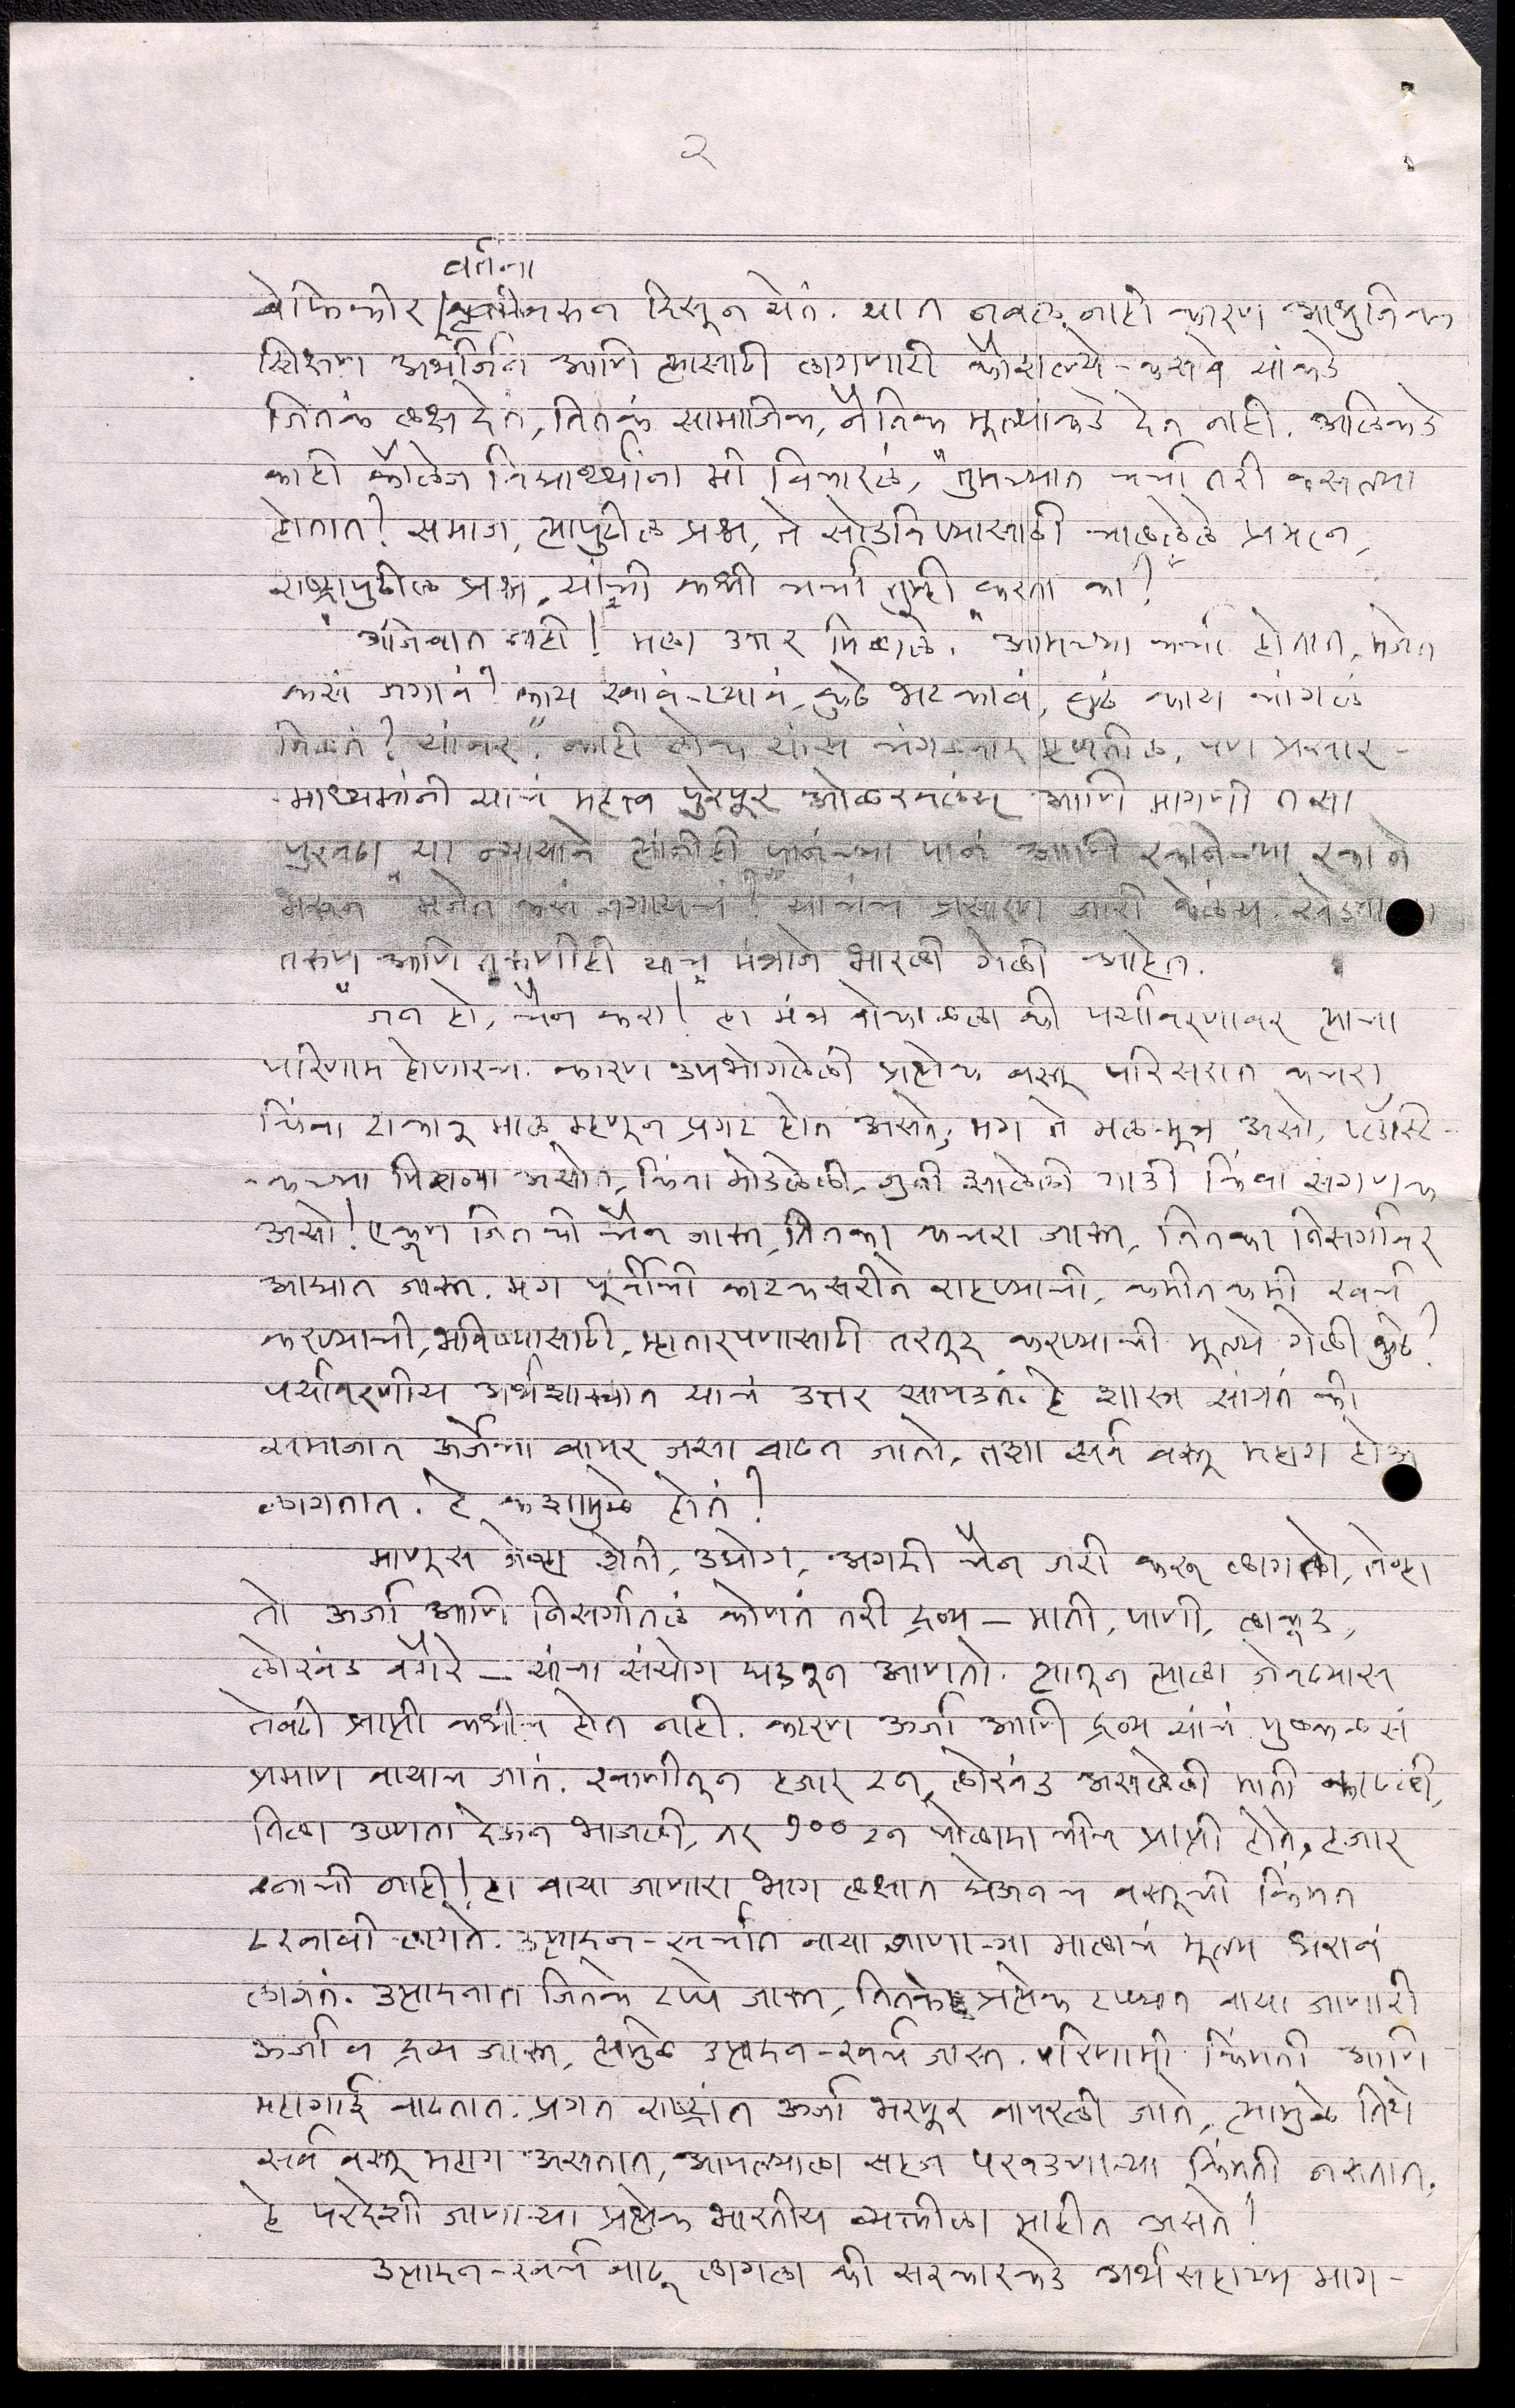 २
वर्तना
बेफिकीर वरून दिसून येतं. यात नवल नाही कारण आधुनिक
शिक्षण अर्थार्जन आणि त्यासाठी लागणारी कौशल्ये-कसबे यांकडे
जितकं लक्ष देतं, तितकं सामाजिक, नैतिक मूल्यांकडे देत नाही. अलिकडे
काही कॉलेज विद्यार्थ्यांना मी विचारलं, "तुमच्यात चर्चा तरी कसल्या
होतात? समाज, त्यापुढील प्रश्न, ते सोडविण्यासाठी चाललेले प्रयत्न,
राष्ट्रापुढील प्रश्न, यांची कधी चर्चा तुम्ही करता का?"
"अजिबात नाही! मला उत्तर मिळाले. "आमच्या चर्चा होतात, मजेत
कसं जगावं? काय खावं-प्यावं, कुठे भटकावं, कुठं काय चांगलं
मिळतं? यांवर." काही लोक यांस चंगळवाद म्हणतील, पण प्रसार-
-माध्यमांनी याचं महत्त्व पुरेपूर ओळखलंय आणि मागणी तसा
पुरवठा या न्यायाने त्यांनीही पानंच्या पानं आणि रकानेच्या रकाने
भरून "मजेत कसं जगायचं?" याचंच प्रसारण जारी केलंय.
तरुण आणि तरुणीही याच मंत्राने भारली गेली आहेत.
"जन हो, चैन करा!" हा मंत्र बोकाळला की पर्यावरणावर त्याचा
परिणाम होणारच. कारण उपभोगलेली प्रत्येक वस्तू परिसरात कचरा
किंवा टाकाऊ माल म्हणून प्रगट होत असते; मग ते मळ-मूत्र असो, प्लॅस्टि-
-कच्या पिशव्या असोत, किंवा मोडलेली, जुनी झालेली गाडी किंवा संगणक
असो! एकूण जितकी चैन जास्त, तितका कचरा जास्त, तितका निसर्गावर
आघात जास्त. मग पूर्वीची काटकसरीने राहण्याची, कमीत कमी खर्च
करण्याची, भविष्यासाठी, म्हातारपणासाठी तरतूद करण्याची मूल्ये गेली कुठे?
पर्यावरणीय अर्थशास्त्रात याचं उत्तर सापडतं. हे शास्त्र सांगतं की
समाजात ऊर्जेचा वापर जसा वाढत जातो, तशा सर्व वस्तू महाग होऊ
लागतात. हे कशामुळे होतं?
माणूस जेव्हा शेती, उद्योग, अगदी चैन जरी करू लागतो, तेव्हा
तो ऊर्जा आणि निसर्गातलं कोणतं तरी द्रव्य – माती, पाणी, लाकूड,
लोखंड वगैरे – यांचा संयोग घडवून आणतो. त्यातून त्याला जेवढ्यास
तेवढी प्राप्ती कधीच होत नाही. कारण ऊर्जा आणि द्रव्य यांचं पुष्कळसं
प्रमाण वायाच जातं. खाणीतून हजार टन लोखंड असलेली माती काढली,
तिला उष्णता देऊन भाजली, तर १०० टन पोलादाचीच प्राप्ती होते, हजार
टनाची नाही! हा वाया जाणारा भाग लक्षात घेऊनच वस्तूची किंमत
ठरवावी लागते. उत्पादन-खर्चात वाया जाणाऱ्या मालाचं मूल्य धरावं
लागतं. उत्पादनात जितके टप्पे जास्त, तितके प्रत्येक टप्प्यात वाया जाणारी
ऊर्जा व द्रव्य जास्त, त्यामुळे उत्पादन-खर्च जास्त. परिणामी किंमती आणि
महागाई वाढतात. प्रगत राष्ट्रांत ऊर्जा भरपूर वापरली जाते, त्यामुळे तिथे
सर्व वस्तू महाग असतात, आपल्याला सहज परवडणाऱ्या किंमती नसतात.
हे परदेशी जाणाऱ्या प्रत्येक भारतीय व्यक्तीला माहीत असते!
उत्पादन-खर्च वाढू लागला की सरकारकडे अर्थसहाय्य माग-